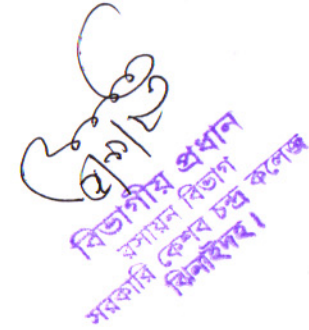 বিভাগীয় প্রধান
রসায়ন বিভাগ
সরকারি কেশব চন্দ্র কলেজ
ঝিনাইদহ।